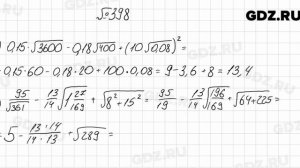 GDZ.RU
№398
) 0,15·√3600 - 0,18√400 + (10√0,08)² =
0,15·60 - 0,18·20 + 100·0,08 = 9 - 3,6 + 8 = 13,4
) 95/√361 - 13/14 √1 27/169 + √8² + 15² = 95/19 - 13/14 √196/169 + √64+225 =
= 5 - 13·14/14·13 + √289 =
GDZ.RU